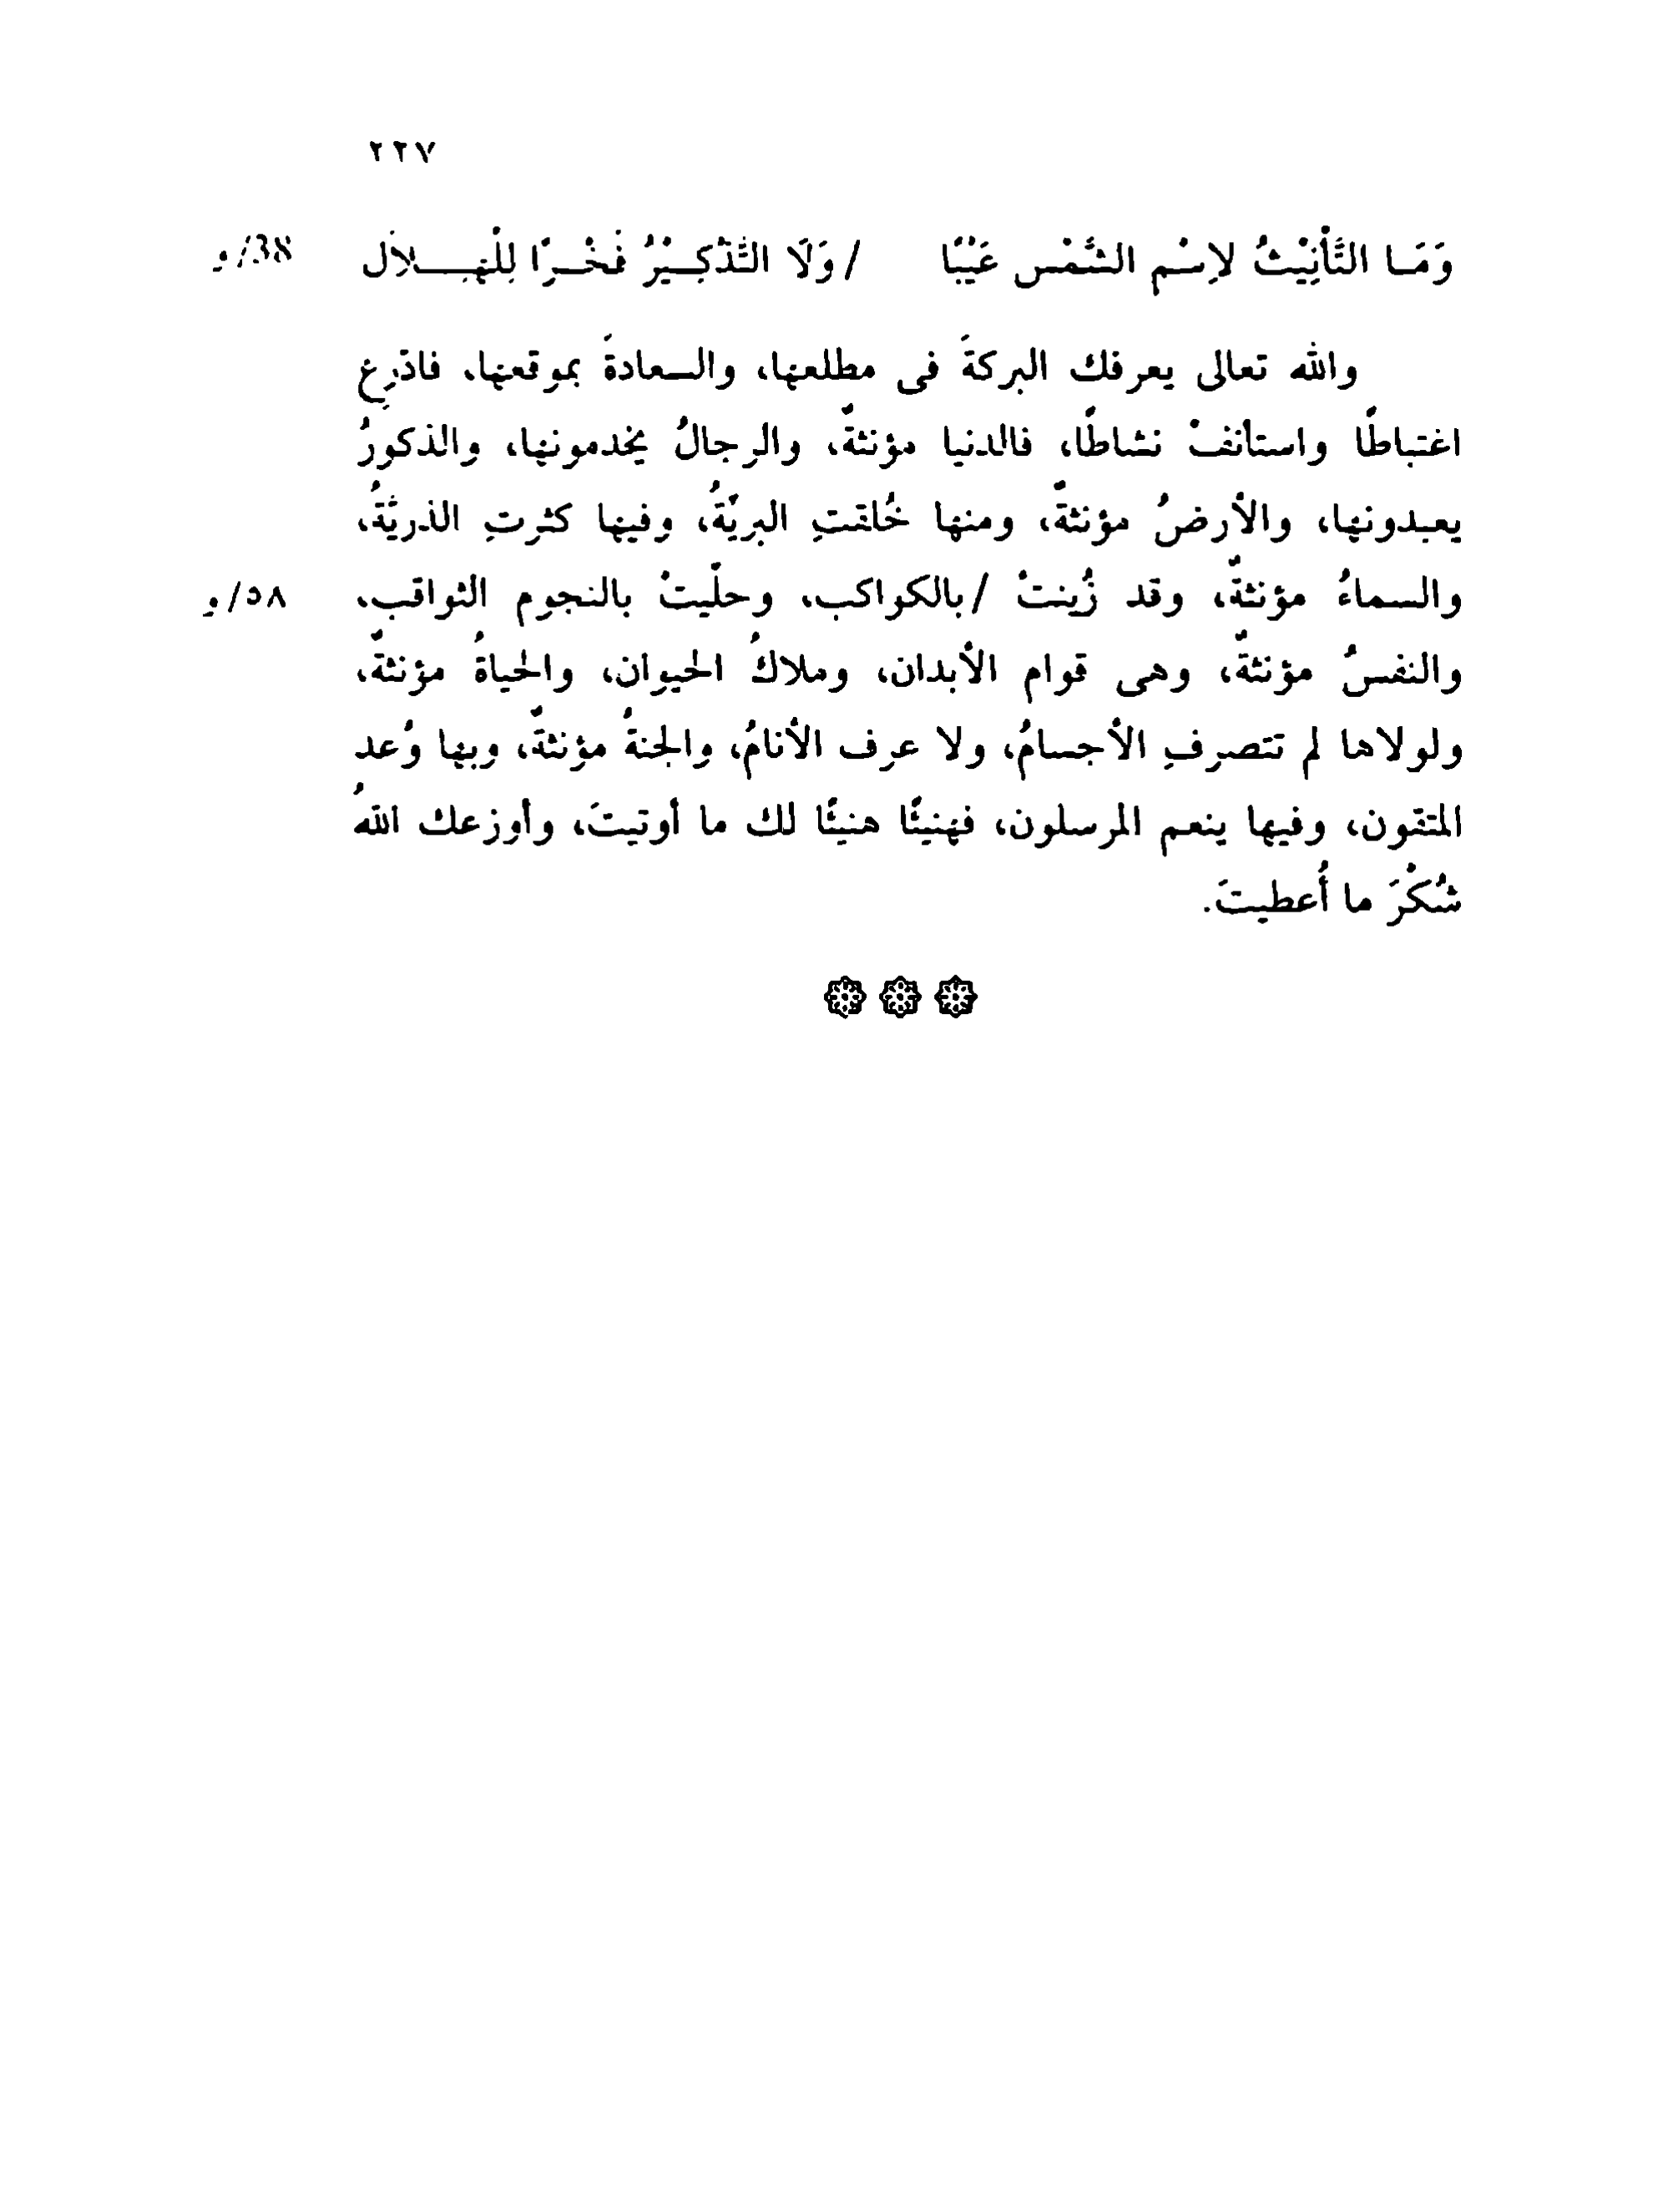 ٢٢٧
وَمَـا التَّأْنِيْثُ لاِسْمِ الشَّمْسِ عَيْبًا / وَلَا التَّذْكِيْرُ فَخْرًا لِلْهِلاَلِ 38/و
والله تعالى يعرفك البركةَ فى مطلعها، والسعادةَ بموقعها، فادّرِع
اغتباطًا واستأنفْ نشاطًا، فالدنيا مؤنثةٌ، والرجالُ يخدمونها، والذكورُ
يعبدونها، والأرضُ مؤنثةٌ، ومنها خُلقتِ البريّةُ، وفيها كثرتِ الذريّةُ،
والسماءُ مؤنثةٌ، وقد زُينتْ / بالكواكب، وحلّيتْ بالنجوم الثواقب، ٥٨/و
والنفسُ مؤنثةٌ، وهى قوام الأبدان، وملاكُ الحيوان، والحياةُ مؤنثةٌ،
ولولاها لم تتصرفِ الأجسامُ، ولا عرف الأنامُ، والجنةُ مؤنثةٌ، وبها وُعد
المتقون، وفيها ينعم المرسلون، فهنيئًا هنيئًا لك ما أوتيتَ، وأوزعك اللهُ
شُكْرَ ما أُعطيتَ.